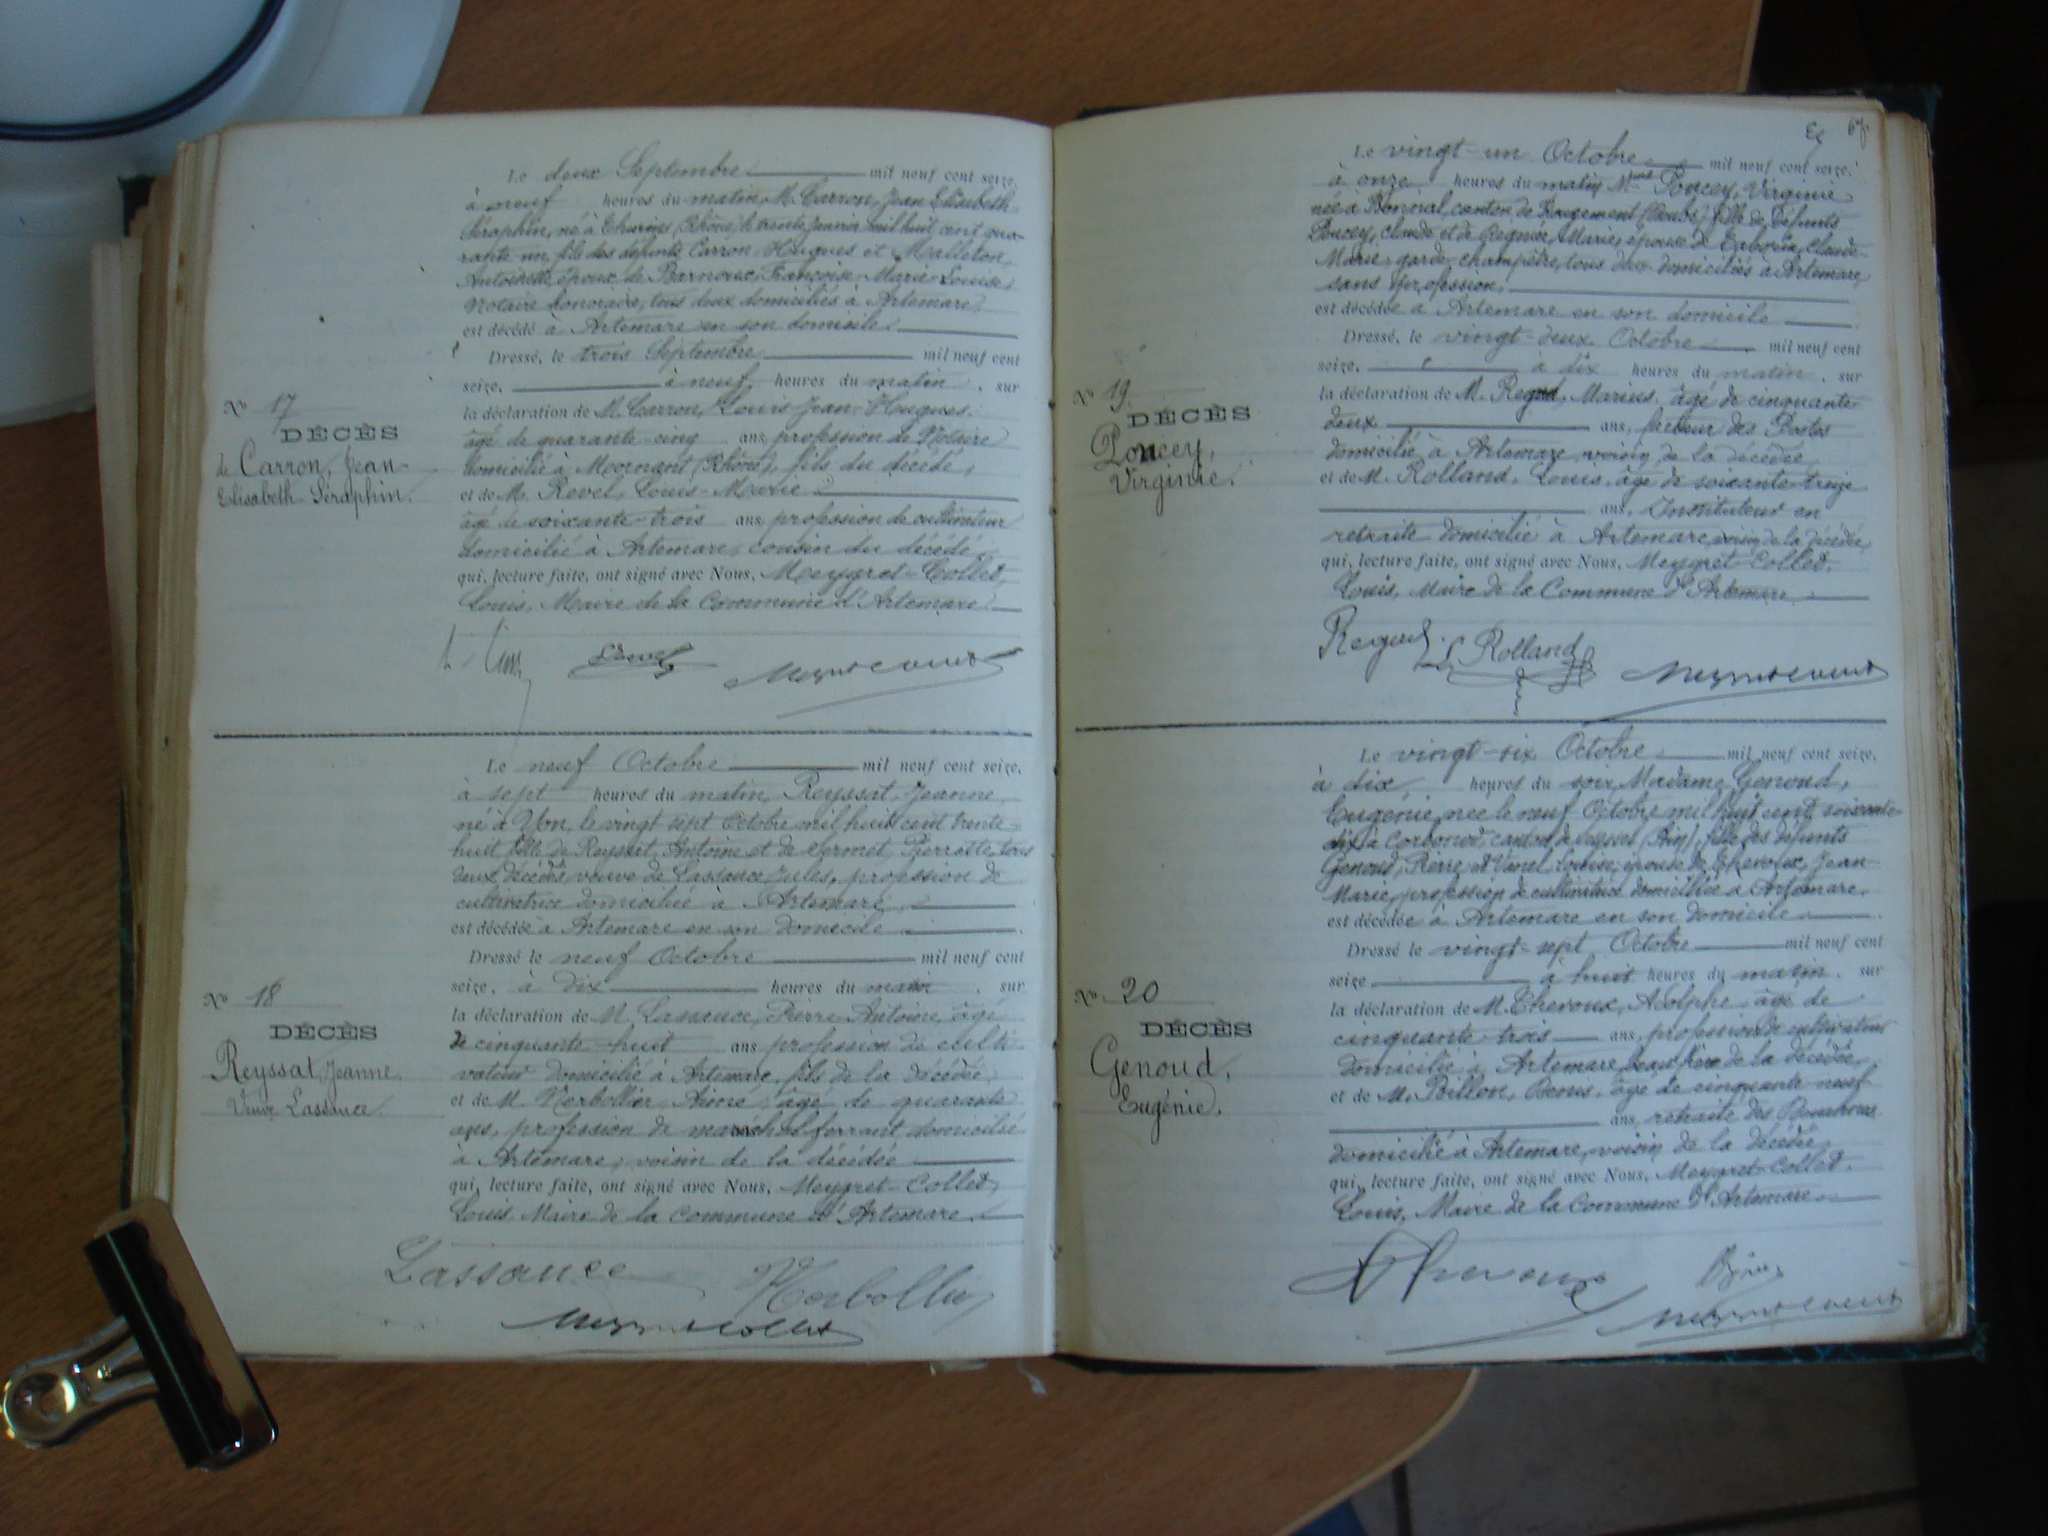 Le deux Septembre mil neuf cent seize,
à neuf heures du matin, M. Carron, Jean Elisabeth
Séraphin, né à Thurins (Rhône) le trente Janvier mil huit cent qua-
rante un, fils des défunts Carron, Hugues et Malleton,
Antoinette, époux de Barnoux, Françoise Marie Louise,
Notaire honoraire, tous deux domiciliés à Artemare,
est décédé à Artemare en son domicile.
Dressé, le trois Septembre mil neuf cent
seize, à neuf heures du matin, sur
la déclaration de M. Carron, Louis Jean Hugues
âgé de quarante cinq ans, profession de Notaire
domicilié à Mornant (Rhône), fils du décédé,
et de M. Revel, Louis-Marie
âgé de soixante-trois ans, profession de cultivateur
domicilié à Artemare, cousin du décédé,
qui, lecture faite, ont signé avec Nous, Meygret-Collet,
Louis, Maire de la Commune d'Artemare.
No 17
DÉCÈS
de Carron, Jean-
Elisabeth-Séraphin.
Revel
Le neuf Octobre mil neuf cent seize,
à sept heures du matin, Reyssat, Jeanne,
né à Yon, le vingt sept Octobre mil huit cent trente-
huit, fille de Reyssat, Antoine et de Sermet, Pierrette, tous
deux décédés, veuve de Lassauce, Jules, profession de
cultivatrice domiciliée à Artemare,
est décédée à Artemare en son domicile
Dressé le neuf Octobre mil neuf cent
seize, à dix heures du matin, sur
la déclaration de M. Lassauce, Pierre Antoine, âgé
de cinquante-huit ans, profession de culti-
vateur domicilié à Artemare, fils de la décédée,
et de M. âgé de quarante
ans, profession de maréchal ferrant, domicilié
à Artemare, voisin de la décédée
qui, lecture faite, ont signé avec Nous, Meygret-Collet,
Louis, Maire de la Commune d'Artemare.
No 18
DÉCÈS
Reyssat, Jeanne
Veuve Lassauce.
Lassauce
Meygret Collet
67
Le vingt-un Octobre mil neuf cent seize,
à onze heures du matin, Mme Poncey, Virginie
née à Bonnal, canton de Rougemont (Doubs), fille de défunts
Poncey, Claude et de Regnier, Marie, épouse de Claude-
Marie, garde-champêtre, tous deux domiciliés à Artemare,
sans profession,
est décédée à Artemare en son domicile
Dressé, le vingt-deux Octobre mil neuf cent
seize, à dix heures du matin, sur
la déclaration de M. Regud, Marius, âgé de cinquante
deux ans, facteur des Postes
domicilié à Artemare, voisin de la décédée
et de M. Rolland, Louis, âgé de soixante-treize
ans, Instituteur en
retraite domicilié à Artemare, voisin de la décédée,
qui, lecture faite, ont signé avec Nous, Meygret-Collet,
Louis, Maire de la Commune d'Artemare.
No 19
DÉCÈS
Poncey,
Virginie.
L. Rolland
Le vingt-six Octobre mil neuf cent seize,
à dix heures du soir, Madame Genoud,
Eugénie, née le neuf Octobre mil huit cent soixante
dix à Corbonod, canton de Seyssel (Ain), fille des défunts
Genoud, Pierre, et Louise, épouse de Thevoux, Jean-
Marie, profession de cultivatrice domiciliée à Artemare,
est décédée à Artemare en son domicile
Dressé le vingt-sept Octobre mil neuf cent
seize à huit heures du matin, sur
la déclaration de M. Theroux, Adolphe, âgé de
cinquante trois ans, profession de cultivateur
domicilié à Artemare, beau-frère de la décédée,
et de M. Billon, Denis, âgé de cinquante neuf
ans, retraité des Douanes
domicilié à Artemare, voisin de la décédée
qui, lecture faite, ont signé avec Nous, Meygret-Collet,
Louis, Maire de la Commune d'Artemare
No 20
DÉCÈS
Genoud,
Eugénie.